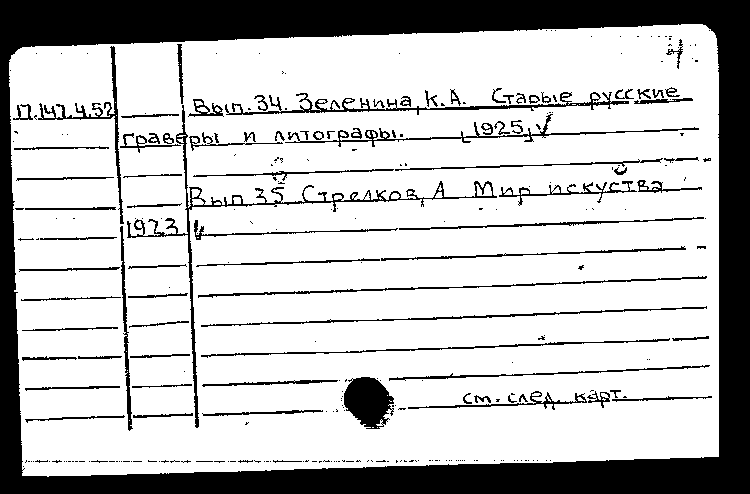 4
17.147.4.52 Вып. 34. Зеленина, К.А. Старые русские
граверы и литографы. [1925] √
Вып 35 Стрелков, А Мир искуства
1923 √
см. след. карт.